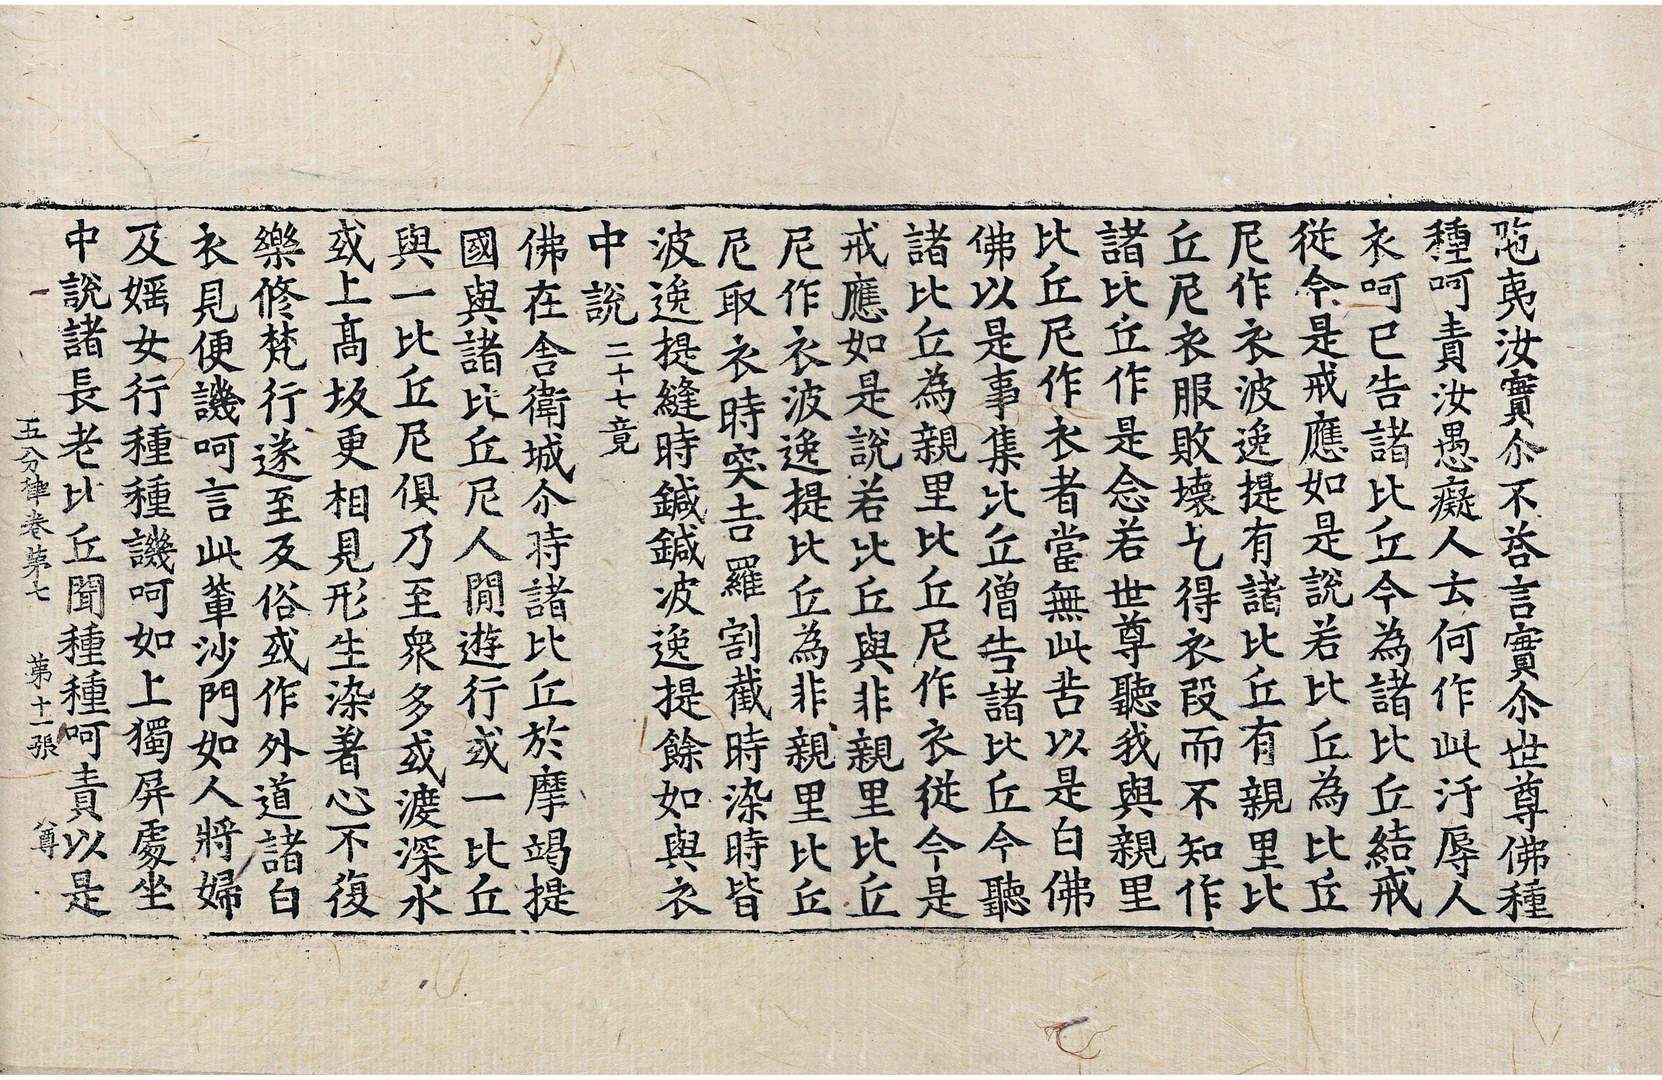 陁夷汝實尒不荅言實尒世尊佛種
種呵責汝愚癡人去何作此汙辱人
衣呵已告諸比丘今為諸比丘結戒
從今是戒應如是說若比丘為比丘
尼作衣波逸提有諸比丘有親里比
丘尼衣服敗壞乞得衣段而不知作
諸比丘作是念若世尊聽我與親里
比丘尼作衣者當無此苦以是白佛
佛以是事集比丘僧告諸比丘今聽
諸比丘為親里比丘尼作衣從今是
戒應如是說若比丘與非親里比丘
尼作衣波逸提比丘為非親里比丘
尼取衣時突吉羅割截時染時皆
波逸提縫時鍼鍼波逸提餘如與衣
中說二十七竟
佛在舍衛城尒時諸比丘於摩竭提
國與諸比丘尼人閒遊行或一比丘
與一比丘尼俱乃至衆多或渡深水
或上高坂更相見形生染著心不復
樂修梵行遂至及俗或作外道諸白
衣見便譏呵言此輩沙門如人將婦
及婬女行種種譏呵如上獨屏處坐
中說諸長老比丘聞種種呵責以是
五分律卷第七 第十一張 八尊